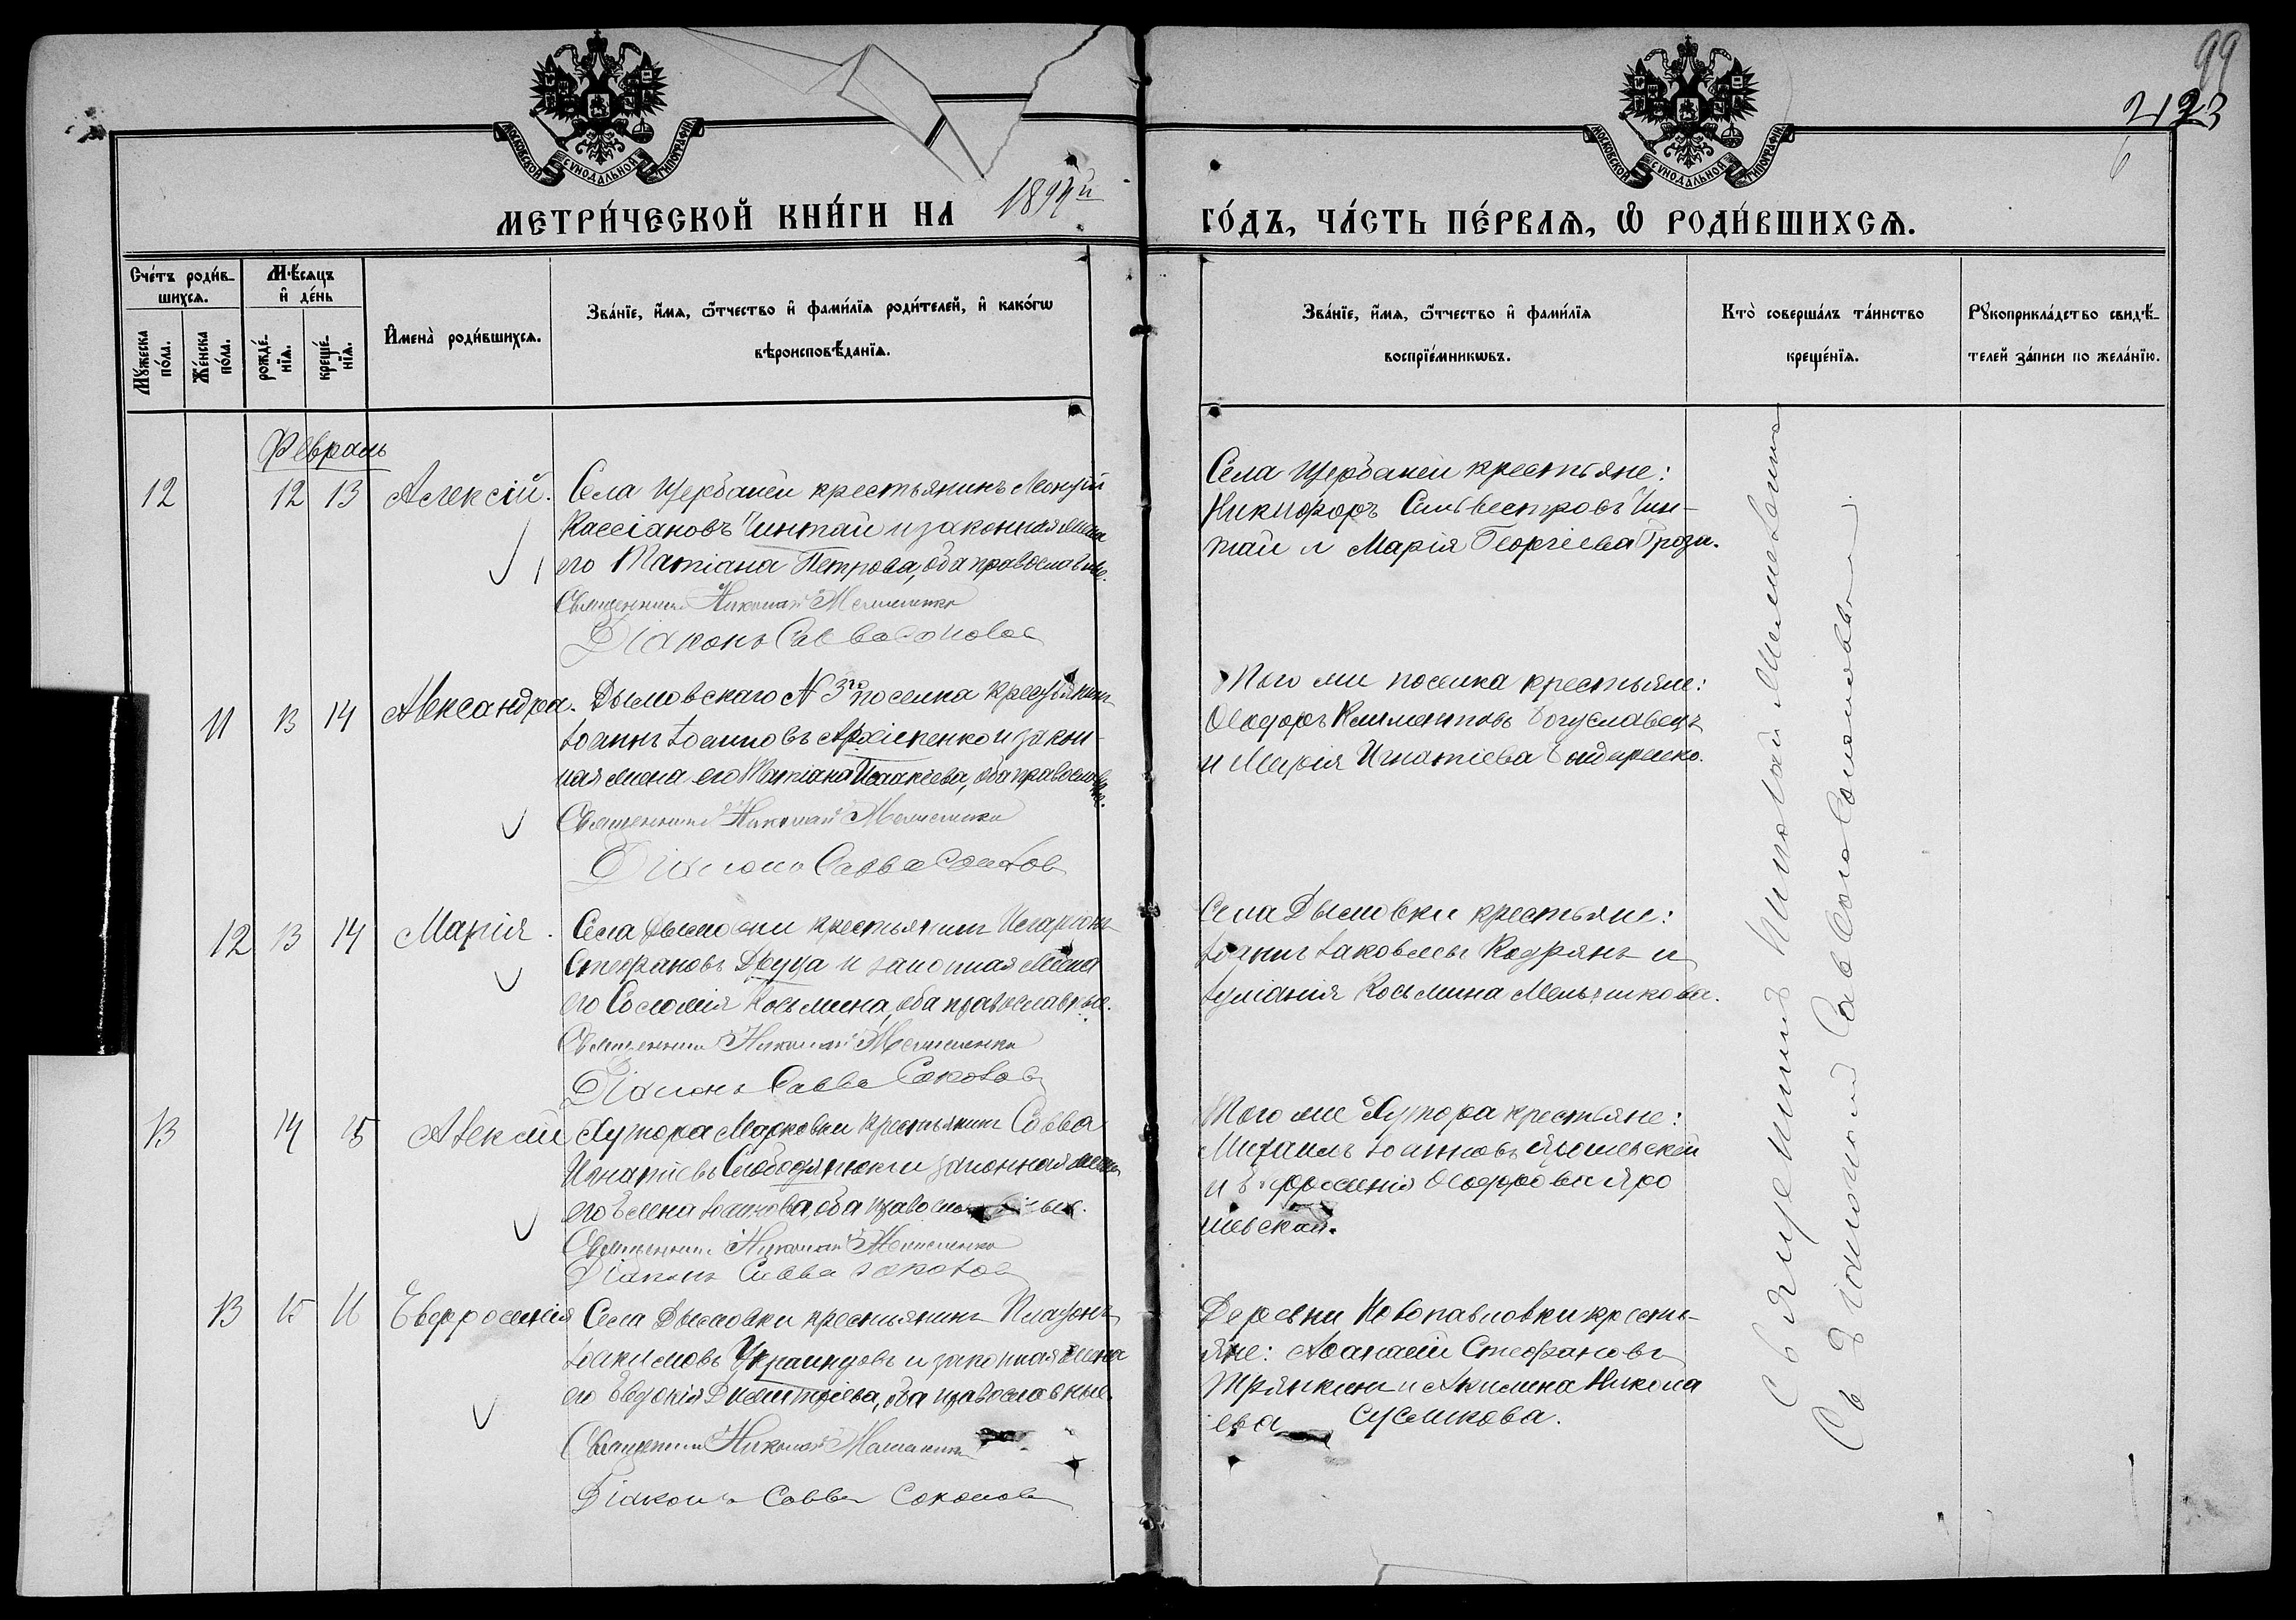 99
2123
МОСКОВСКОЙ СѴНОДАЛЬНОЙ ТИПОГРАФІИ.
МОСКОВСКОЙ СѴНОДАЛЬНОЙ ТИПОГРАФІИ.
МЕТРИ́ЧЕСКОЙ КНИ́ГИ НА
ГО́ДЪ, ЧА́СТЬ ПЕ́РВАѦ, Ѿ РОДИ́ВШИХСѦ.
Сче́тъ роди́в-
шихсѧ.
Мѣ́сѧцъ
и҆ де́нь
Мꙋ́жеска по́ла.
Же́нска по́ла.
рожде́-
нїѧ.
креще́-
нїѧ.
И҆мена̀ роди́вшихсѧ.
Зва́нїе, и҆́мѧ, ѻ҆́тчество и҆ фами́лїѧ роди́телей, и҆ како́гѡ
вѣроисповѣ́данїѧ.
Зва́нїе, и҆́мѧ, ѻ҆́тчество и҆ фами́лїѧ
воспрїе́мникѡвъ.
Кто̀ соверша́лъ та́инство
креще́нїѧ.
Рꙋкоприкла́дство свидѣ́-
телей за́писи по жела́нїю.
Февраль
12 12 13 Алексій.
Села Щербаней крестьянинъ
Кассіановъ Чинтай и законная жена
его Татіана Петрова, оба православные.
Священникъ Николай
Діаконъ Савва Соколов
Села Щербаней крестьяне:
Никифоръ Сильвестровъ Чин-
тай и Марія Георгіева
11 13 14 Александра.
Дымовскаго N 3го поселка крестьянинъ
Іоаннъ Іоанновъ Архипенко и закон-
ная жена его Татіана Исаакіева, оба православные.
Священникъ Николай
Діаконъ Савва Соколов
Того же поселка крестьяне:
Ѳеодоръ Климентовъ Богуславецъ
и Марія Игнатіева Бондаренко.
12 13 14 Марія.
Села Дымовки крестьянинъ Иларіонъ
Стефановъ Дуца и законная жена
его Соломія Косьмина, оба православные.
Священникъ Николай
Діаконъ Савва Соколов
Села Дымовки крестьяне:
Іоаннъ Іаковлевъ Кодрянъ и
Іуліанія Косьмина Мельникова.
13 14 15 Алексій
Хутора Марковки крестьянинъ Савва
Игнатіевъ Слободянюкъ и законная жена
его Елена Іоаннова, оба православные.
Священникъ Николай
Діаконъ Савва Соколов
Того же Хутора крестьяне:
Михаилъ Іоанновъ Ярошевскій
и Евфросинія Ѳеодорова Яро
шевская.
13 15 16 Евфросинія
Села Дымовки крестьянинъ Платонъ
Іоакимовъ Украинцовъ и законная жена
его Евдокія Димитріева, оба православные.
Священникъ Николай
Діаконъ Савва Соколов
Деревни Новопавловки кресть-
яне: Аѳанасій Стефановъ
Трянкин и Акилина Никола
ева Сусликова.
Священникъ Николай
Съ діакономъ Саввою Соколовымъ